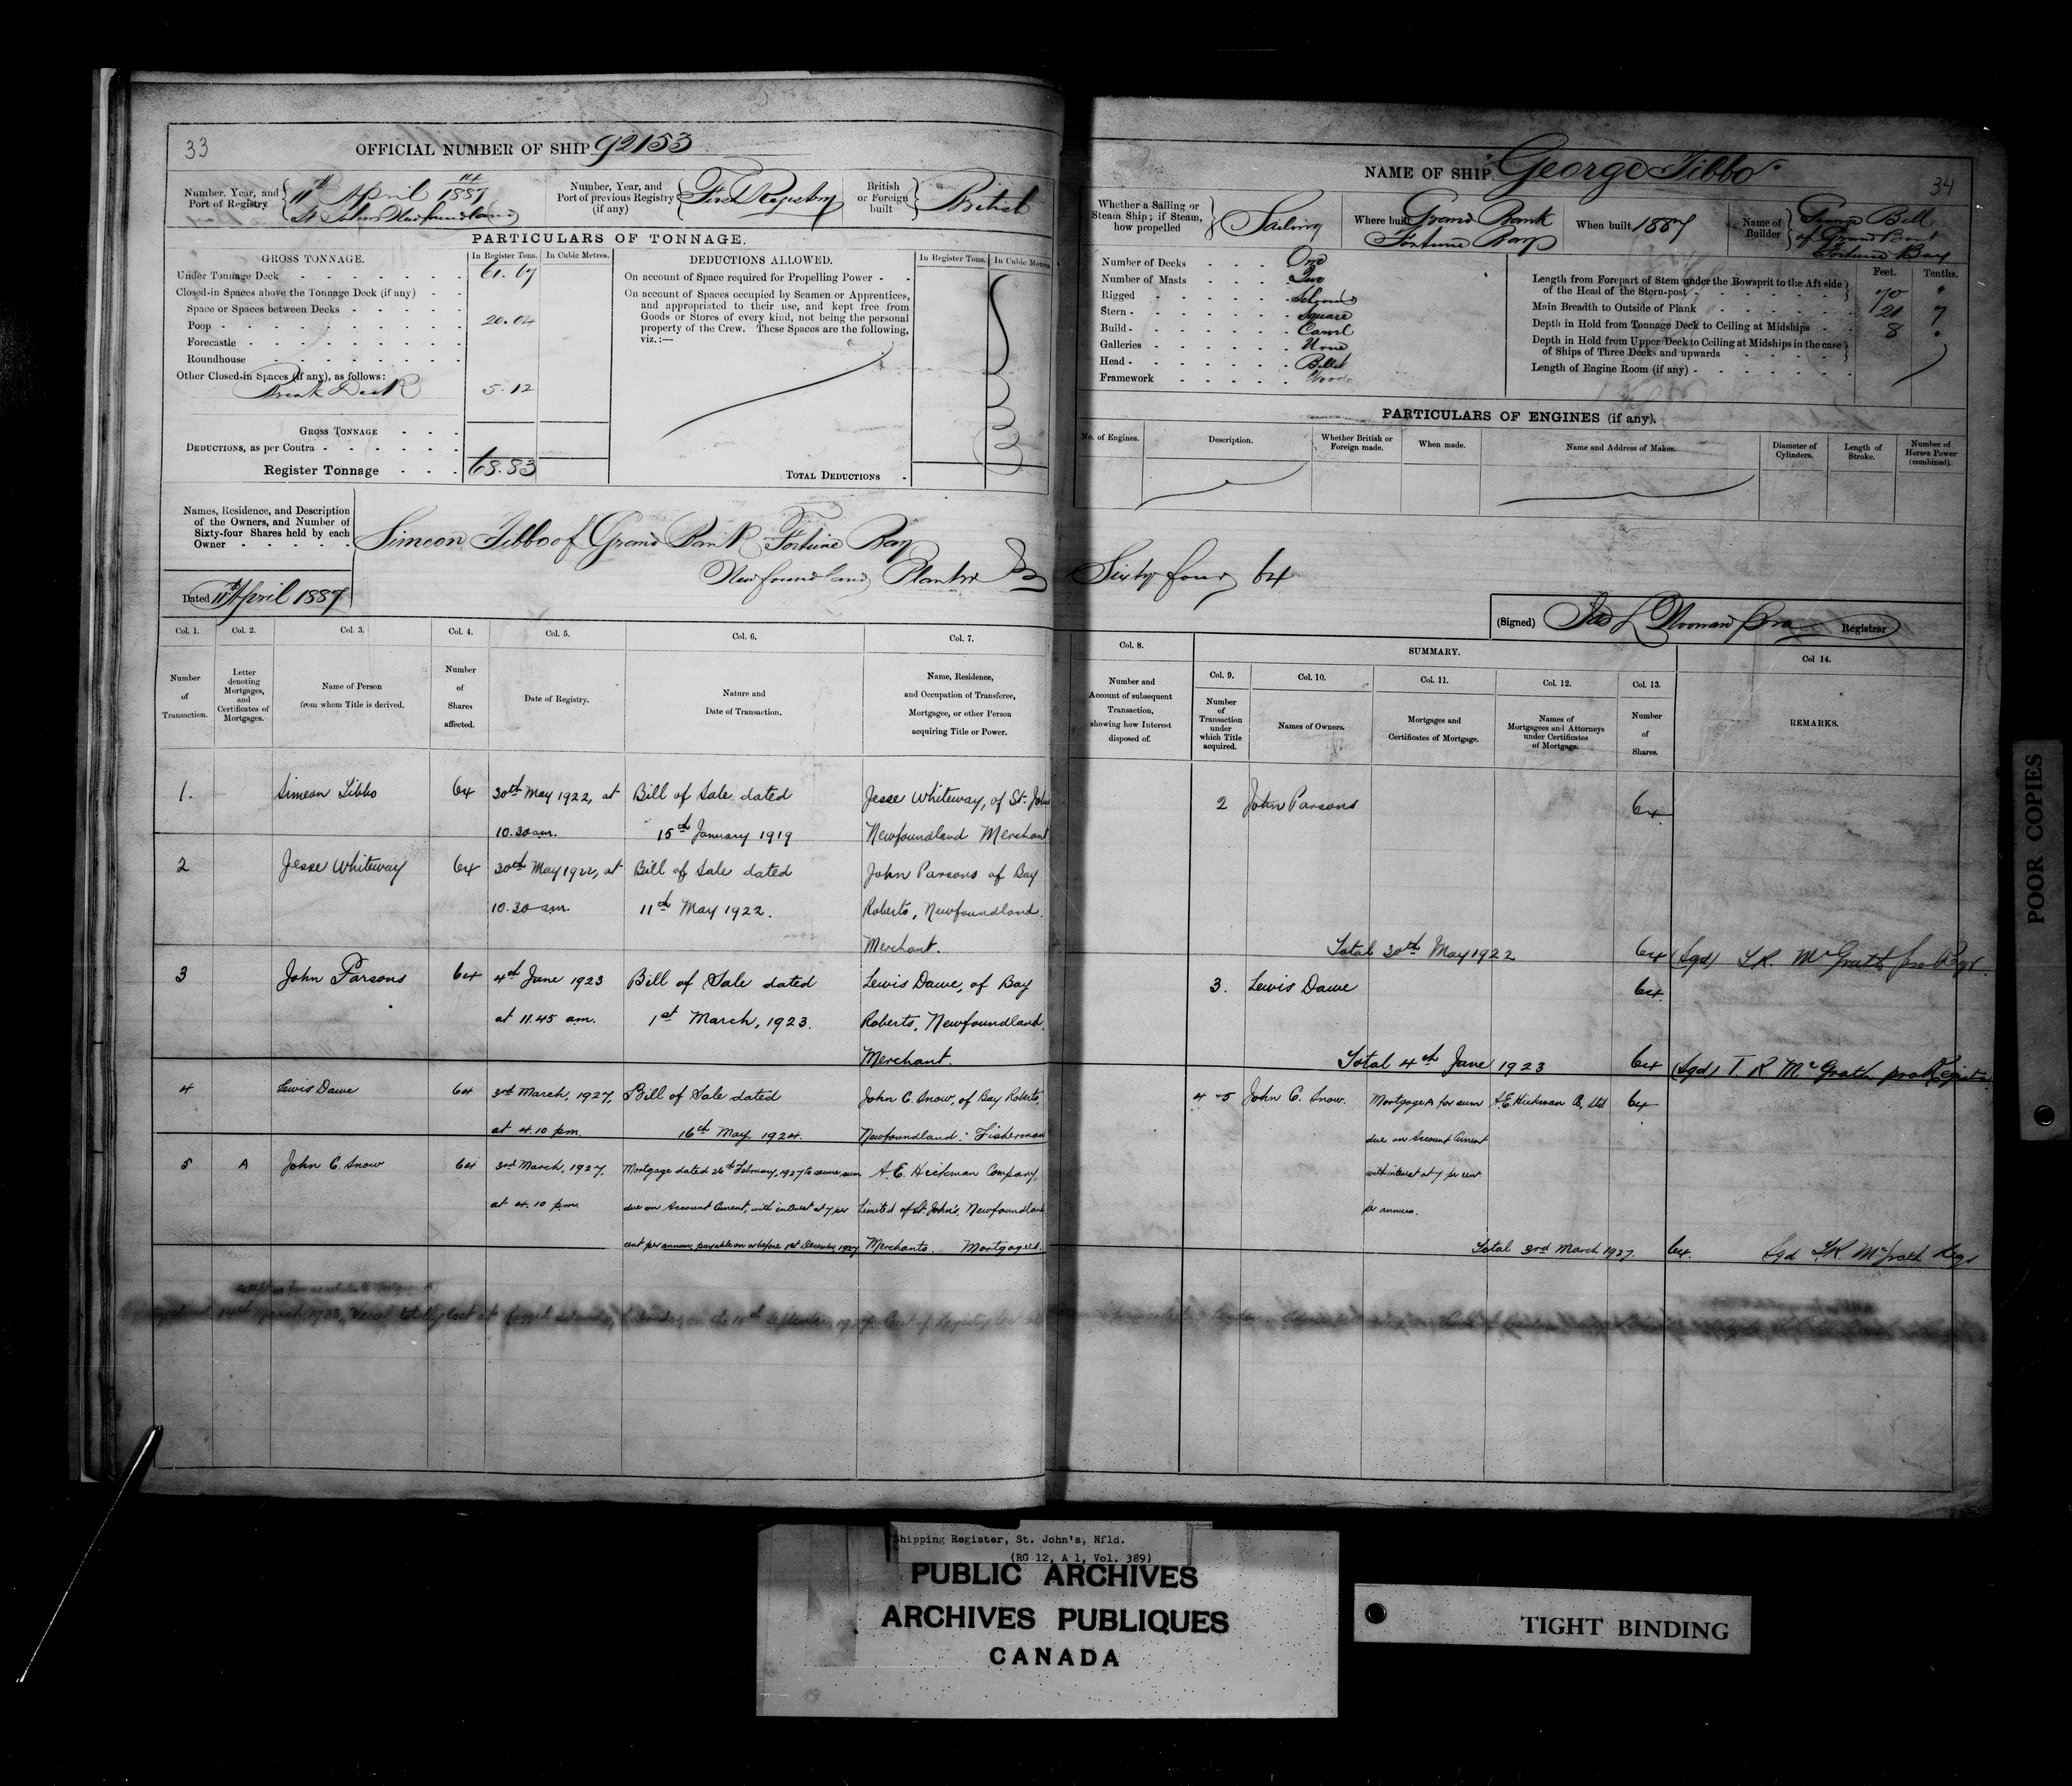 33
OFFICIAL NUMBER OF SHIP 92153
Number, Year, and Port of Registry
11th April 1887
St Johns Newfoundland
Number, Year, and Port of previous Registry (if any)
First Registry
British or Foreign built
British
PARTICULARS OF TONNAGE.
GROSS TONNAGE.
In Register Tons.
In Cubic Metres.
DEDUCTIONS ALLOWED.
In Register Tons.
In Cubic Metres
Under Tonnage Deck
Closed-in Spaces above the Tonnage Deck (if any)
Space or Spaces between Decks
Poop
Forecastle
Roundhouse
Other Closed-in Spaces (if any), as follows:
Break Deck 5.12
GROSS TONNAGE
DEDUCTIONS, as per Contra
Register Tonnage 68.83
On account of Space required for Propelling Power
On account of Spaces occupied by Seamen or Apprentices,
and appropriated to their use, and kept free from
Goods or Stores of every kind, not being the personal
property of the Crew. These Spaces are the following,
viz.:—
TOTAL DEDUCTIONS
Names, Residence, and Description
of the Owners, and Number of
Sixty-four Shares held by each
Owner
Simeon Tibbo of Grand Bank Fortune Bay
Newfoundland Planter
Dated 11th April 1887
Col. 1. Col. 2. Col. 3. Col. 4. Col. 5. Col. 6. Col. 7.
Number of Transaction.
Letter denoting Mortgages, and Certificates of Mortgages.
Name of Person from whom Title is derived.
Number of Shares affected.
Date of Registry.
Nature and Date of Transaction.
Name, Residence, and Occupation of Transferee, Mortgagee, or other Person acquiring Title or Power.
1. Simeon Tibbo 64 30th May 1922, at Bill of Sale dated Jesse Whiteway, of St. John's
10.30 am. 15th January 1919 Newfoundland Merchant
2 Jesse Whiteway 64 30th May 1922, at Bill of Sale dated John Parsons of Bay
10.30 am. 11th May 1922. Roberts, Newfoundland.
Merchant.
3 John Parsons 64 4th June 1923 Bill of Sale dated Lewis Dawe, of Bay
at 11.45 am. 1st March, 1923. Roberts, Newfoundland.
Merchant.
4 Lewis Dawe 64 3rd March, 1927, Bill of Sale dated John C. Snow, of Bay Roberts,
at 4.10 pm. 16th May, 1924. Newfoundland: Fisherman
5 A John C. Snow 64 3rd March, 1927, Mortgage dated 26th February, 1927 to secure sum A. E. Hickman Company,
at 4.10 pm. due on Account Current, with interest at 7 per Limited of St. John's, Newfoundland
cent per annum, payable on or before 1st December 1927 Merchants. Mortgagees.
14th March 1933, Vessel totally lost at
NAME OF SHIP "George Tibbo"
34
Whether a Sailing or Steam Ship; if Steam, how propelled
Sailing
Where built
Grand Bank
Fortune Bay
When built 1887
Name of Builder
George Bell
of Grand Bank
Fortune Bay
Number of Decks One
Number of Masts Two
Rigged Schooner
Stern Square
Build Carvel
Galleries None
Head Billet
Framework Wood
Feet. Tenths.
Length from Forepart of Stem under the Bowsprit to the Aft side
of the Head of the Stern-post 70 "
Main Breadth to Outside of Plank 21 7
Depth in Hold from Tonnage Deck to Ceiling at Midships 8 "
Depth in Hold from Upper Deck to Ceiling at Midships in the case
of Ships of Three Decks and upwards
Length of Engine Room (if any)
PARTICULARS OF ENGINES (if any).
No. of Engines.
Description.
Whether British or Foreign made.
When made.
Name and Address of Maker.
Diameter of Cylinders.
Length of Stroke.
Number of Horses Power (combined).
Sixty four 64
(Signed)
Registrar
Col. 8.
SUMMARY.
Col. 9. Col. 10. Col. 11. Col. 12. Col. 13. Col 14.
Number and Account of subsequent Transaction, showing how Interest disposed of.
Number of Transaction under which Title acquired.
Names of Owners.
Mortgages and Certificates of Mortgage.
Names of Mortgagees and Attorneys under Certificates of Mortgage.
Number of Shares.
REMARKS.
2 John Parsons 64
Total 30th May 1922 64 (Sgd) T.R. McGrath pro Regr.
3. Lewis Dawe 64
Total 4th June 1923 64 (Sgd) T. R McGrath pro Registrar
4-5 John C. Snow. Mortgage A for sum A.E. Hickman Co, Ltd 64
due on Account Current
with interest at 7 per cent
per annum.
Total 3rd March 1927. 64. Sgd T.R. McGrath Regr
POOR COPIES
Shipping Register, St. John's, Nfld.
(RG 12, A 1, Vol. 389)
PUBLIC ARCHIVES
ARCHIVES PUBLIQUES
CANADA
TIGHT BINDING